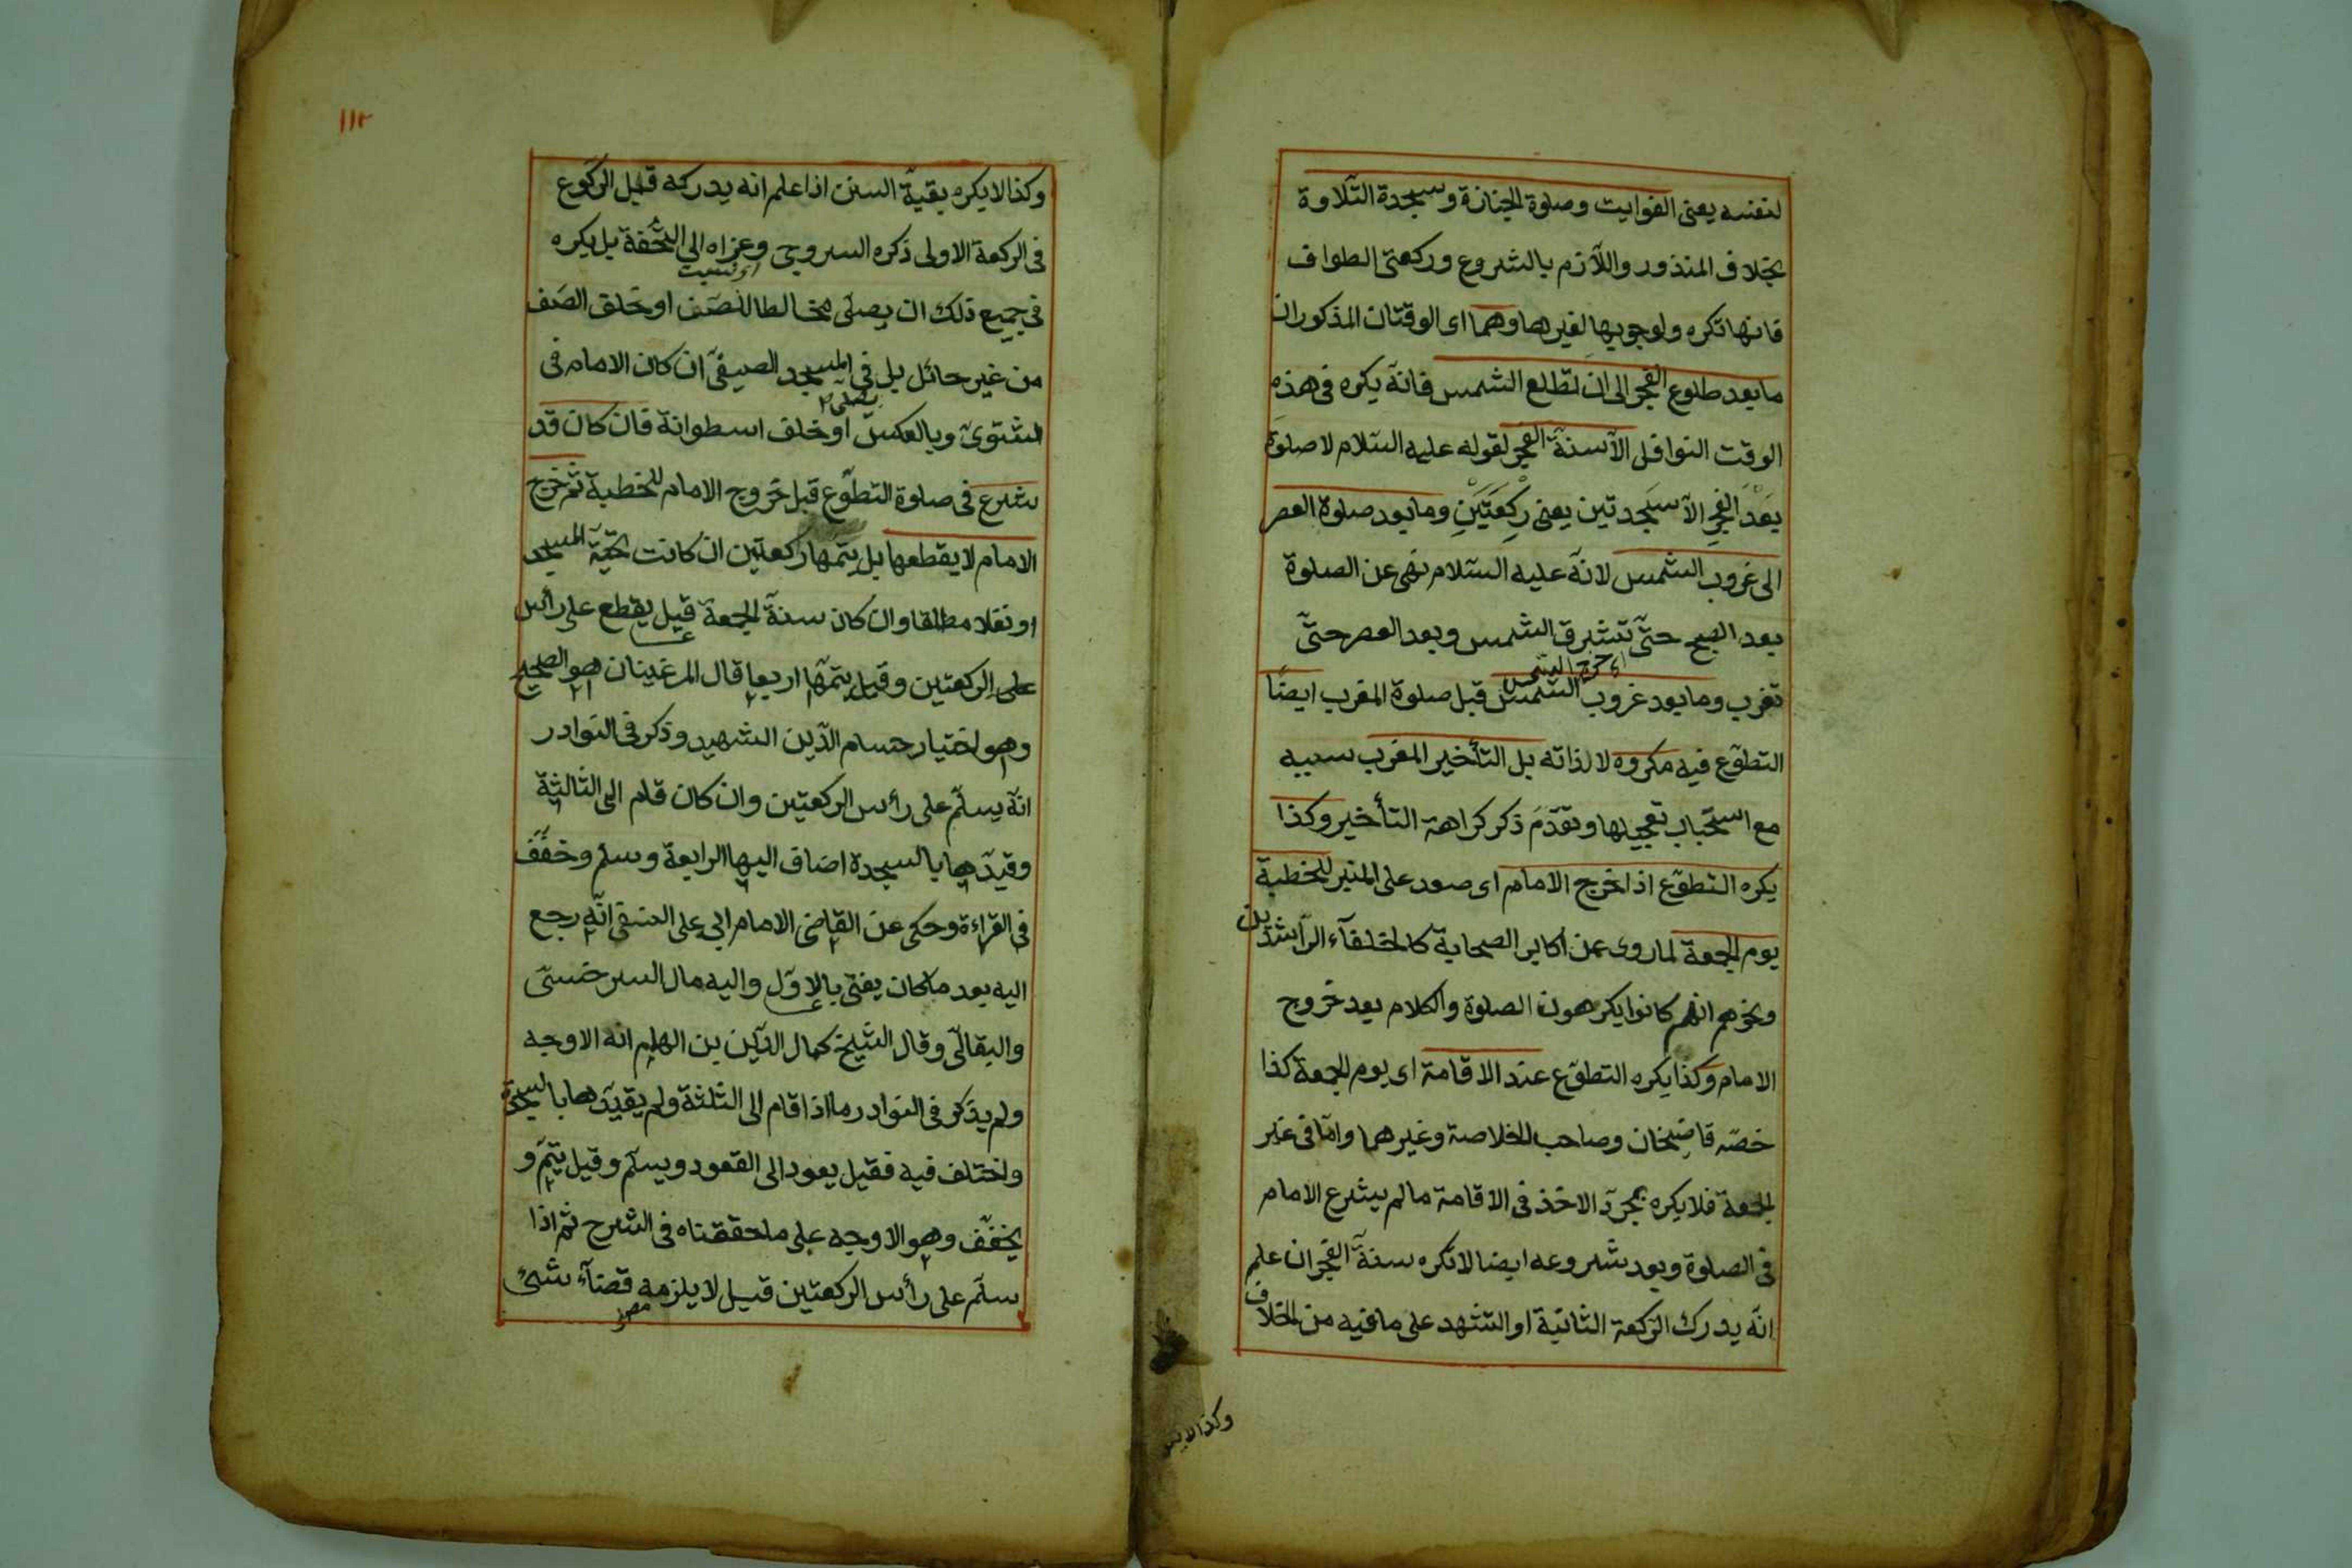 لنفسه يعنى الفوايت وصلوة الجنازة وسجدة التلاوة
بخلاف المنذور واللازم بالشروع وركعتى الطواف
فانها تكره ولوجوبها لغيرها وهما اى الوقتان المذكوران
ما بعد طلوع الفجر الى ان تطلع الشمس فانه يكره فى هذه
الوقت النوافل الا سنة الفجر لقوله عليه السلام لا صلوة
بَعْدَ الفجرِ الا سَجدتين يعنى رَكْعَتَيْنِ وما بعد صلوة العصر
الى غروب الشمس لانه عليه السلام نهى عن الصلوة
بعد الصبح حتّى تشرق الشمس وبعد العصر حتّى
تغرب وما بعد غروب الشمس قبل صلوة المغرب ايضًا
التطوّع فيه مكروه لا لذاته بل التأخير المغرب سببه
مع استحباب تعجيلها وتقدّمَ ذكر كراهة التأخير وكذا
يكره التطوّع اذا خرج الامام اى صعد على المنبر للخطبة
يوم الجمعة لما روى عن اكابر الصحابة كالخلفآء الراشدين
ونحوهم انهم كانوا يكرهون الصلوة والكلام بعد خروج
الامام وكذا يكره التطوّع عند الاقامة اى يوم الجمعة كذا
خصّه قاضيخان وصاحب الخلاصة وغيرهما وامّا فى غير
الجمعة فلا يكره بمجرّد الاخذ فى الاقامة ما لم يشرع الامام
فى الصلوة وبعد شروعه ايضا لا تكره سنة الفجر ان علم
انّه يدرك الركعة الثانية او التشهد على ما فيه من الخلاف
١١٢
وكذا لا يكره بقيّة السنن اذا علم انه يدركه قبل الركوع
فى الركعة الاولى ذكره السروجى وعزاه الى التحفة بل يكره
فى جميع ذلك ان يصلّى مخالطا للصّف او خلف الصّف
من غير حائل بل فى المسجد الصيفىّ ان كان الامام فى
الشتوىّ وبالعكس او خلف اسطوانة فان كان قد
شرع فى صلوة التطوّع قبل خروج الامام للخطبة ثم خرج
الامام لا يقطعها بل يتمها ركعتين ان كانت تحيّة المسجد
او نفلا مطلقا وان كان سنة الجمعة قيل يقطع على رأس
على الركعتين وقيل يتمّها اربعا قال المرغينان هو الصحيح
وهو اختيار حسام الدّين الشهيد وذكر فى النوادر
انّه يسلّم على رأس الركعتين وان كان قام الى الثالثة
وقيّدها بالسجدة اضاف اليها الرابعة وسلم وخفّف
فى القراءة وحكى عن القاضى الامام ابى على النسفى انّه رجع
اليه بعد ما كان يفتى بالاوّل واليه مال السرخسىّ
والبقالّى وقال الشيخ كمال الدّين بن الهام انه الاوجه
ولم يذكر فى النوادر ما اذا قام الى الثلثة ولم يقيّدها بالسجدة
واختلف فيه فقيل يعود الى القعود ويسلّم وقيل يتمّ و
يخفّف وهو الاوجه على ما حققناه فى الشرح ثم اذا
سلّم على رأس الركعتين قيل لا يلزمه قضآء شئ